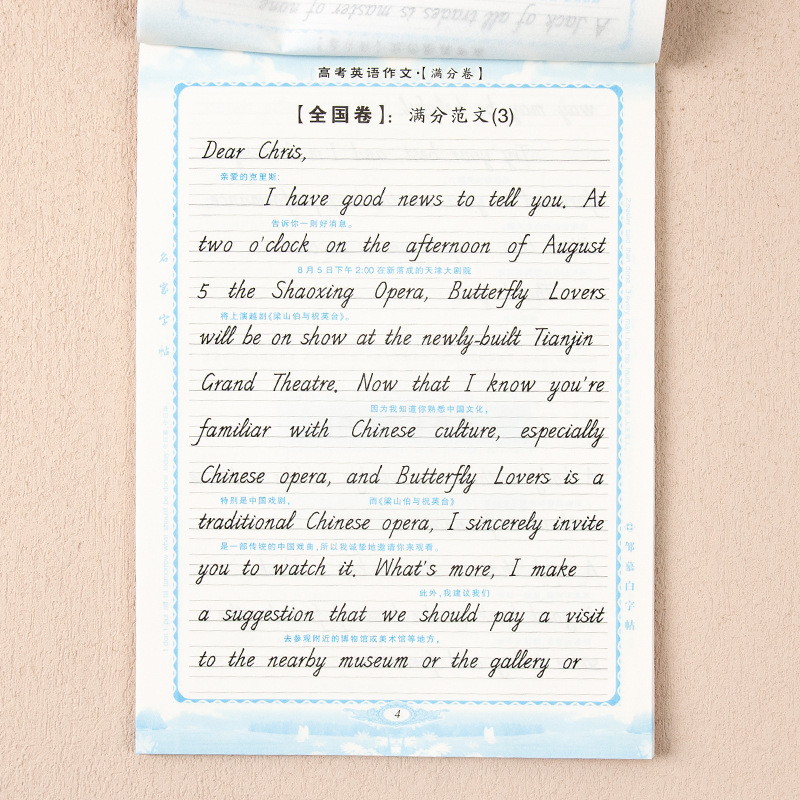 A Jack of all trades is master of none
高考英语作文·【满分卷】
【全国卷】：满分范文(3)
Dear Chris,
亲爱的克里斯:
I have good news to tell you. At
告诉你一则好消息。
two o'clock on the afternoon of August
8月5日下午2:00在新落成的天津大剧院
5 the Shaoxing Opera, Butterfly Lovers
将上演越剧《梁山伯与祝英台》。
will be on show at the newly-built Tianjin
Grand Theatre. Now that I know you're
因为我知道你熟悉中国文化,
familiar with Chinese culture, especially
Chinese opera, and Butterfly Lovers is a
特别是中国戏剧, 而《梁山伯与祝英台》
traditional Chinese opera, I sincerely invite
是一部传统的中国戏曲,所以我诚挚地邀请你来观看。
you to watch it. What's more, I make
此外,我建议我们
a suggestion that we should pay a visit
去参观附近的博物馆或美术馆等地方,
to the nearby museum or the gallery or
名家字帖
邹慕白字帖
4